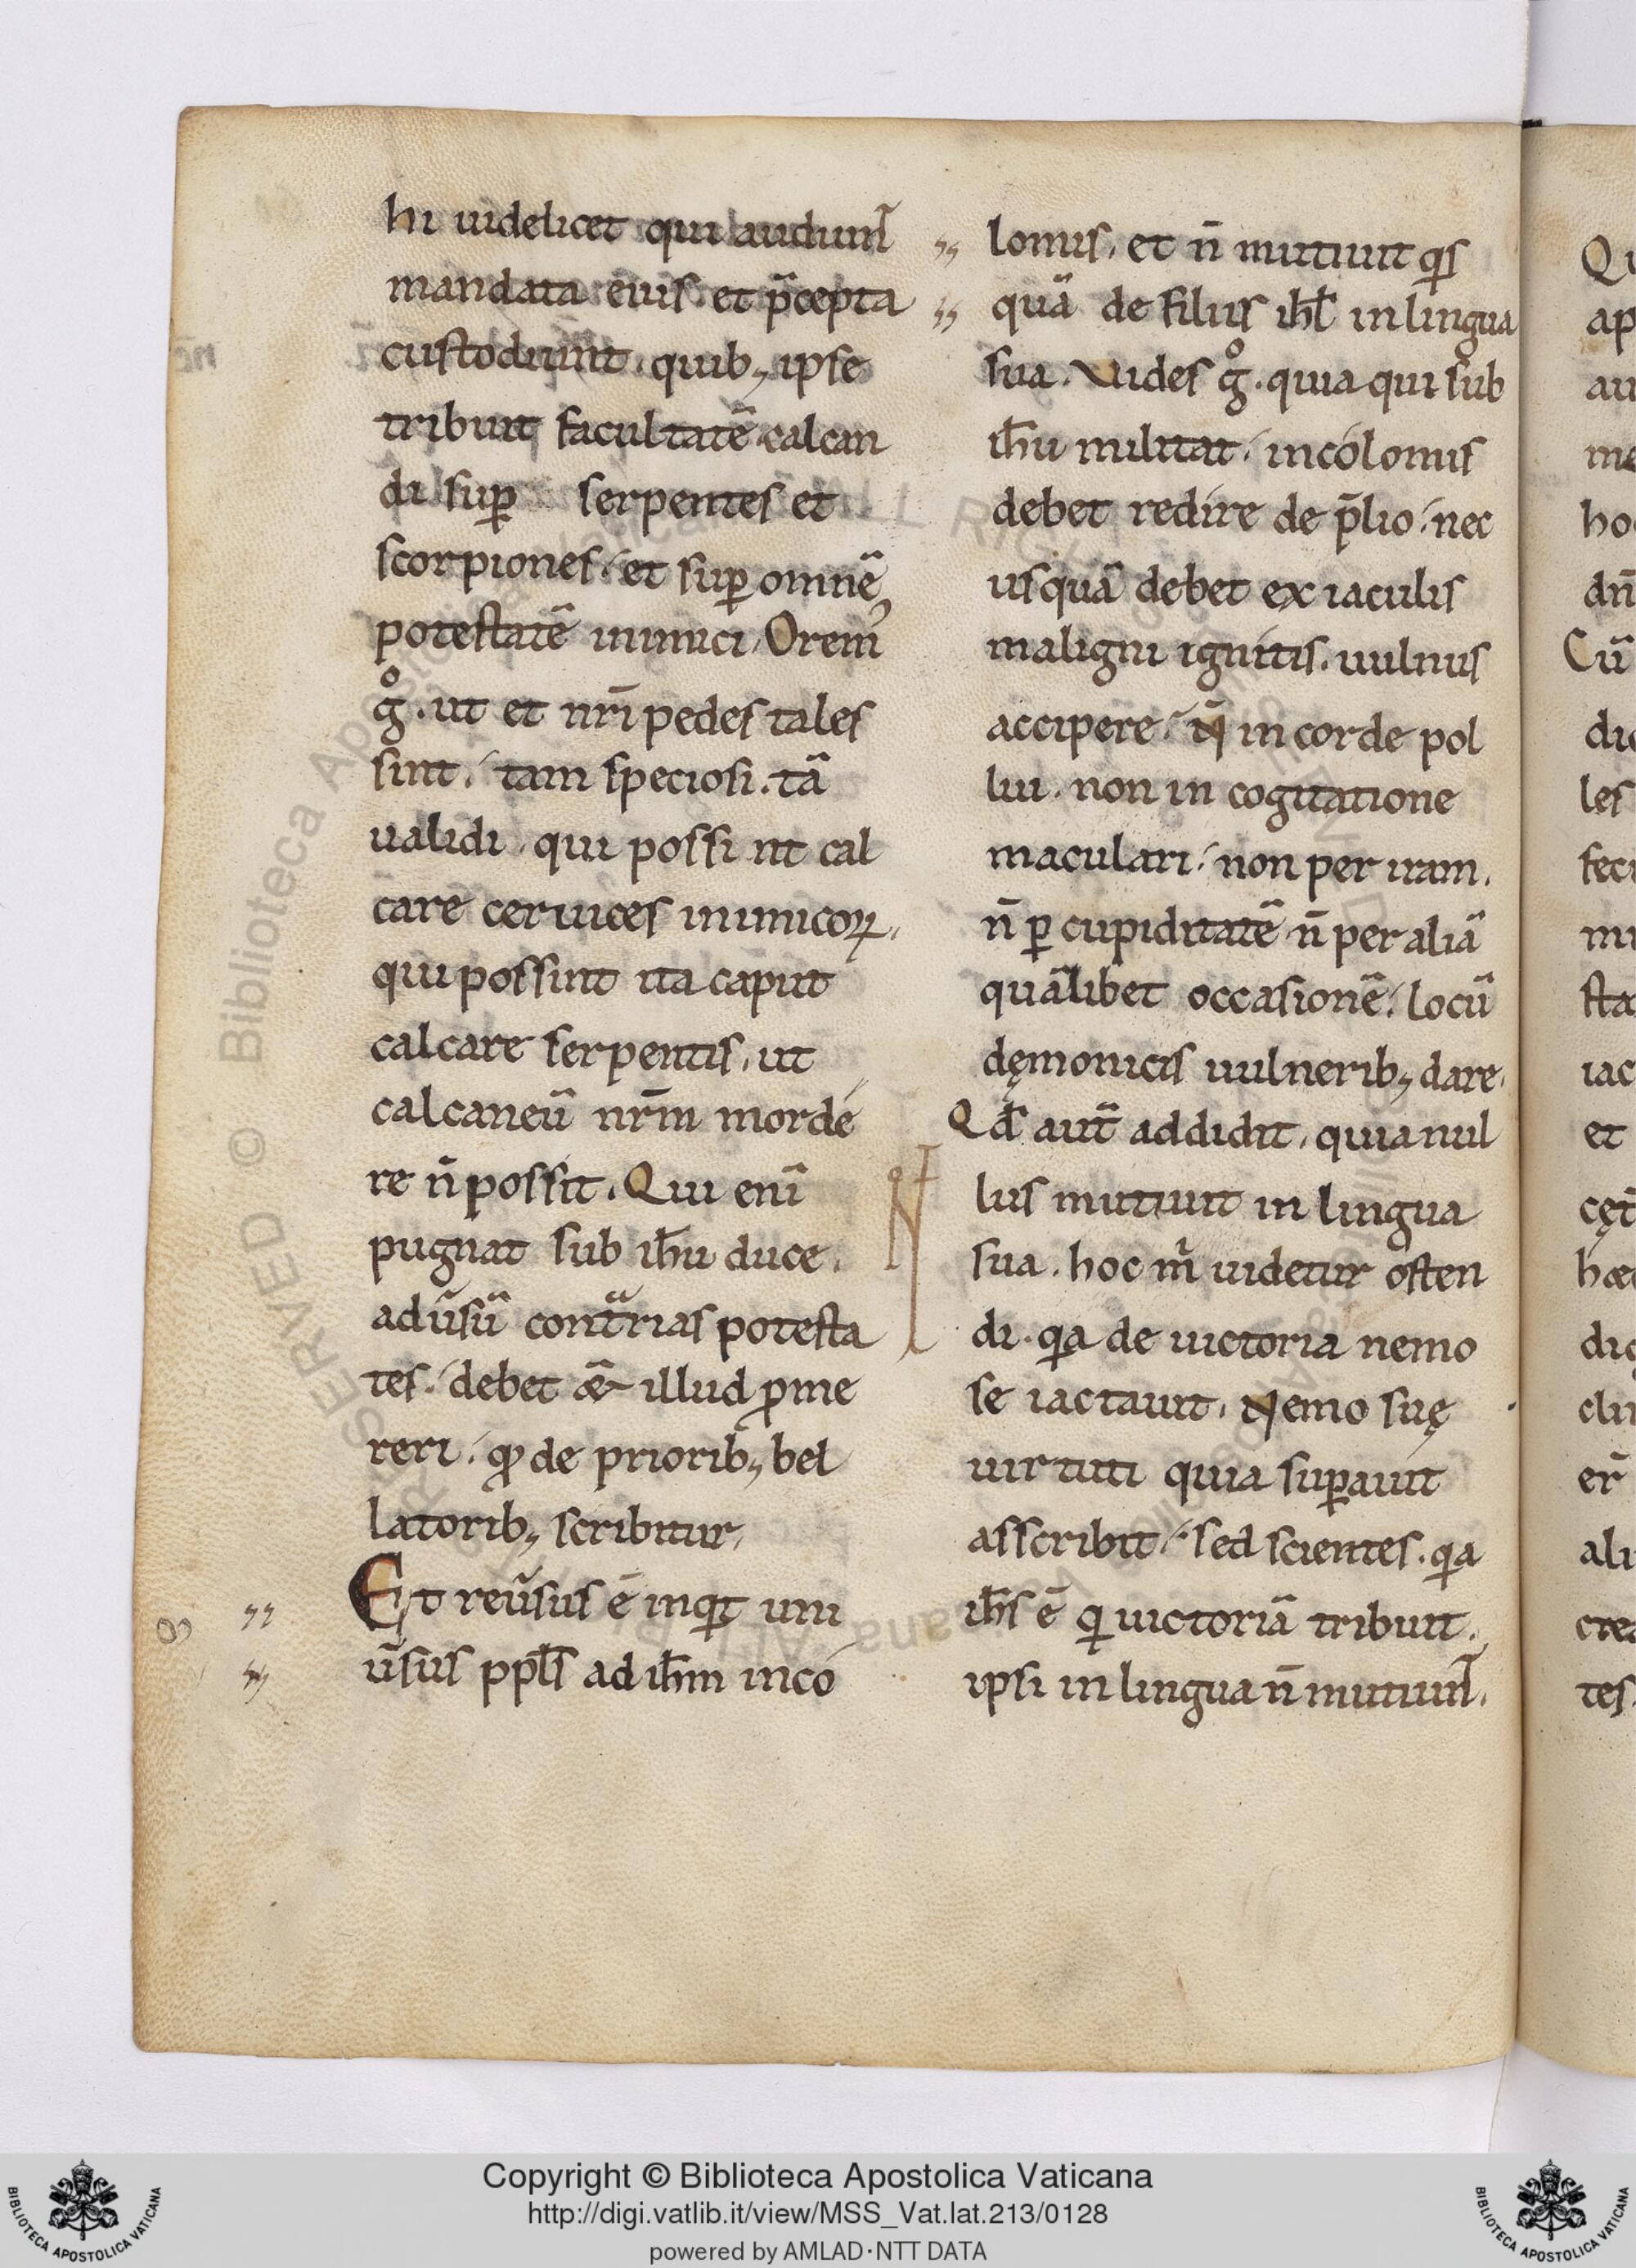 hi uidelicet qui audiunt̄
mandata eius. et p̄cepta
custodiunt. quib; ipse
tribuit facultatē calcan
di suꝑ serpentes et
scorpiones. et suꝑ omnē
potestatē inimici. Orem᾽
g̊. ut et nr̄i pedes tales
sint. tam speciosi. tā
ualidi qui possint cal
care ceruices inimicoꝝ.
qui possint ita caput
calcare serpentis. ut
calcaneū nr̄m morde
re n̄ possit. Qui enī
pugnat sub ih̄u duce.
adūsū contrarias potesta
tes. debet & illud ꝓme
reri. qđ de priorib; bel
latorib; scribitur.
Et reūsus ē inqt uni
ūsus ppl̄s ad ih̄m inco
lomis. et n̄ mutiuit qs
quā de filiis ih̄l in lingua
sua. Vides g̊. quia qui sub
ih̄u militat. incolomis
debet redire de p̄lio. nec
usquā debet ex iaculis
maligni ignitis. uulnus
accipere. N̄ in corde pol
lui. non in cogitatione
maculari. non per iram.
n̄ ꝑ cupiditatē n̄ per aliā
quālibet occasionē. locū
dęmonicis uulnerib; dare.
Qđ aut̄ addidit. quia nul
lus mutiuit in lingua
sua. hoc m̄ uidetur osten
di. qa de uictoria nemo
se iactauit. Nemo suę
uirtuti quia suꝑauit
asscribit. sed scientes. qa
ih̄s ē qi uictoriā tribuit.
ipsi in lingua n̄ mutiunt̄.
Copyright © Biblioteca Apostolica Vaticana
http://digi.vatlib.it/view/MSS_Vat.lat.213/0128
powered by AMLAD·NTT DATA